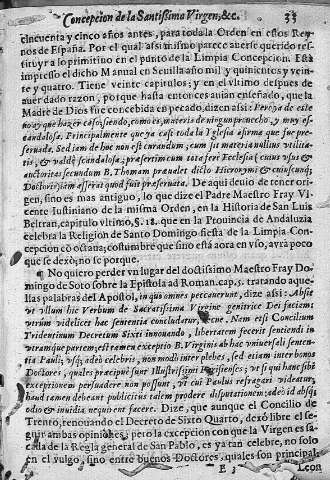 Concepcion de la Santissima Virgen, &c. 33
cincuenta y cinco años antes, para toda la Orden en estos Rey-
nos de España. Por el qual assimismo parece averse querido res-
tituyr a lo primitivo en el punto de la Limpia Concepcion. Està
impresso el dicho Manual en Sevilla año mil y quinientos y vein-
te y quatro. Tiene veinte capitulos; y en el vltimo despues de
aver dado razon, porque hasta entonces avian enseñado, que la
Madre de Dios fue concebida en pecado, dizen assi: Pero ya de esto
no ay que hazer caso, siendo, como es, materia de ningun provecho, y muy es-
candalosa. Principalmente que ya casi toda la Yglesia afirma que fue pre-
servada. Sed iam de hoc non est curandum; cum sit materia nullius vtilita-
tis, & valdè scandalosa; præsertim cum tota ferè Ecclesia (cuius vsus &
auctoritas secundum B. Thomam prævalet dicto Hieronymi & cuiuscunq;
Doctoris) iam asserat quod fuit præservata. De aqui devio de tener ori-
gen, sino es mas antiguo, lo que dize el Padre Maestro Fray Vi-
cente Iustiniano de la misma Orden, en la Historia de San Luis
Beltran, capitulo vltimo, §. 12. que en la Provincia de Andaluzia
celebra la Religion de Santo Domingo fiesta de la Limpia Con-
cepcion cō octava; costumbre que sino està aora en vso, avrà poco
que se dexò, no se porque.
¶ No quiero perder vn lugar del doctissimo Maestro Fray Do-
mingo de Soto sobre la Epistola ad Roman. cap. 5. tratando aque-
llas palabras del Apostol, in quo omnes peccaverunt, dize assi: Absit
vt vllum hic Verbum de Sacratissima Virgine genitrice Dei faciens
vtrum videlicet hac sententia concludatur, nec ne. Nam etsi Concilium
Tridentinum Decretum Sixti innovando, libertatem fecerit sentiendi in
vtramque partem; est tamen exceptio B. Virginis ab hac vniversali senten-
tia Pauli; vsq; adeò celebris, non modò inter plebes, sed etiam inter bonos
Doctores, quales præcipuè sunt Illustrissimi; vt si qui hanc sibi
exceptionem persuadere non possunt, vt cui Paulus refragari videatur,
haud tamen debeant publicitus talem prodere disputationem; adeò id absq;
odio & invidia nequirent facere. Dize, que aunque el Concilio de
Trento, renovando el Decreto de Sixto Quarto, dexò libre el se-
guir ambas opiniones; pero la excepcion con que la Virgen es sa-
cada de la Regla general de San Pablo, es ya tan celebre, no solo
en el vulgo, sino entre buenos Doctores, quales son principal-
E 3 Leon